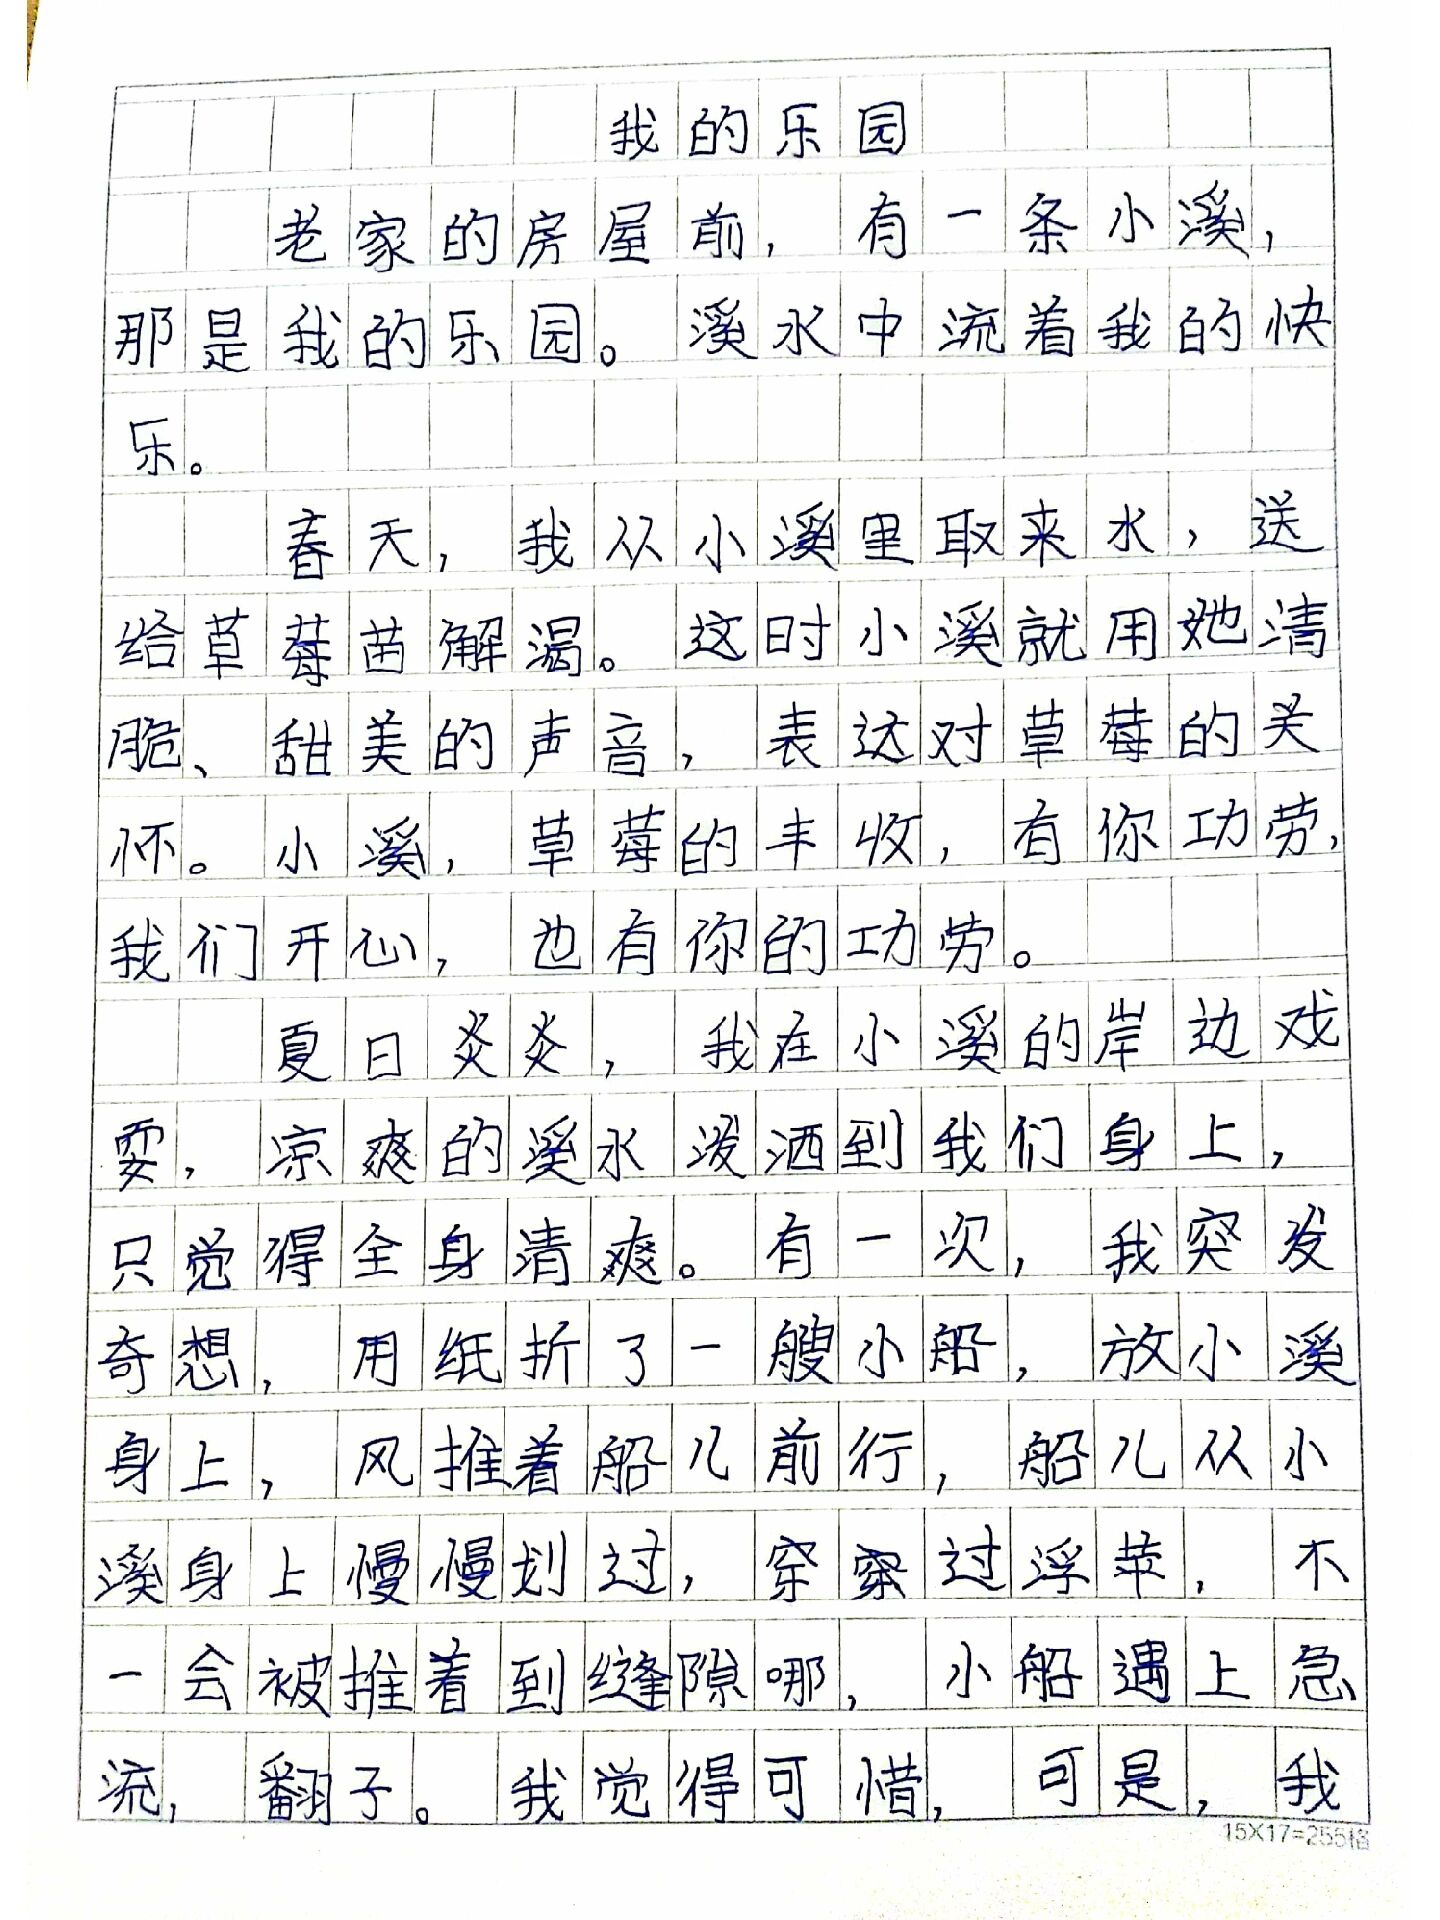 我的乐园
老家的房屋前，有一条小溪，
那是我的乐园。溪水中流着我的快
乐。
春天，我从小溪里取来水，送
给草莓苗解渴。这时小溪就用她清
脆、甜美的声音，表达对草莓的关
怀。小溪，草莓的丰收，有你功劳，
我们开心，也有你的功劳。
夏日炎炎，我在小溪的岸边戏
耍，凉爽的溪水泼洒到我们身上，
只觉得全身清爽。有一次，我突发
奇想，用纸折了一艘小船，放小溪
身上，风推着船儿前行，船儿从小
溪身上慢慢划过，穿穿过浮苹，不
一会被推着到缝隙哪，小船遇上急
流，翻子。我觉得可惜，可是，我
15X17=255格